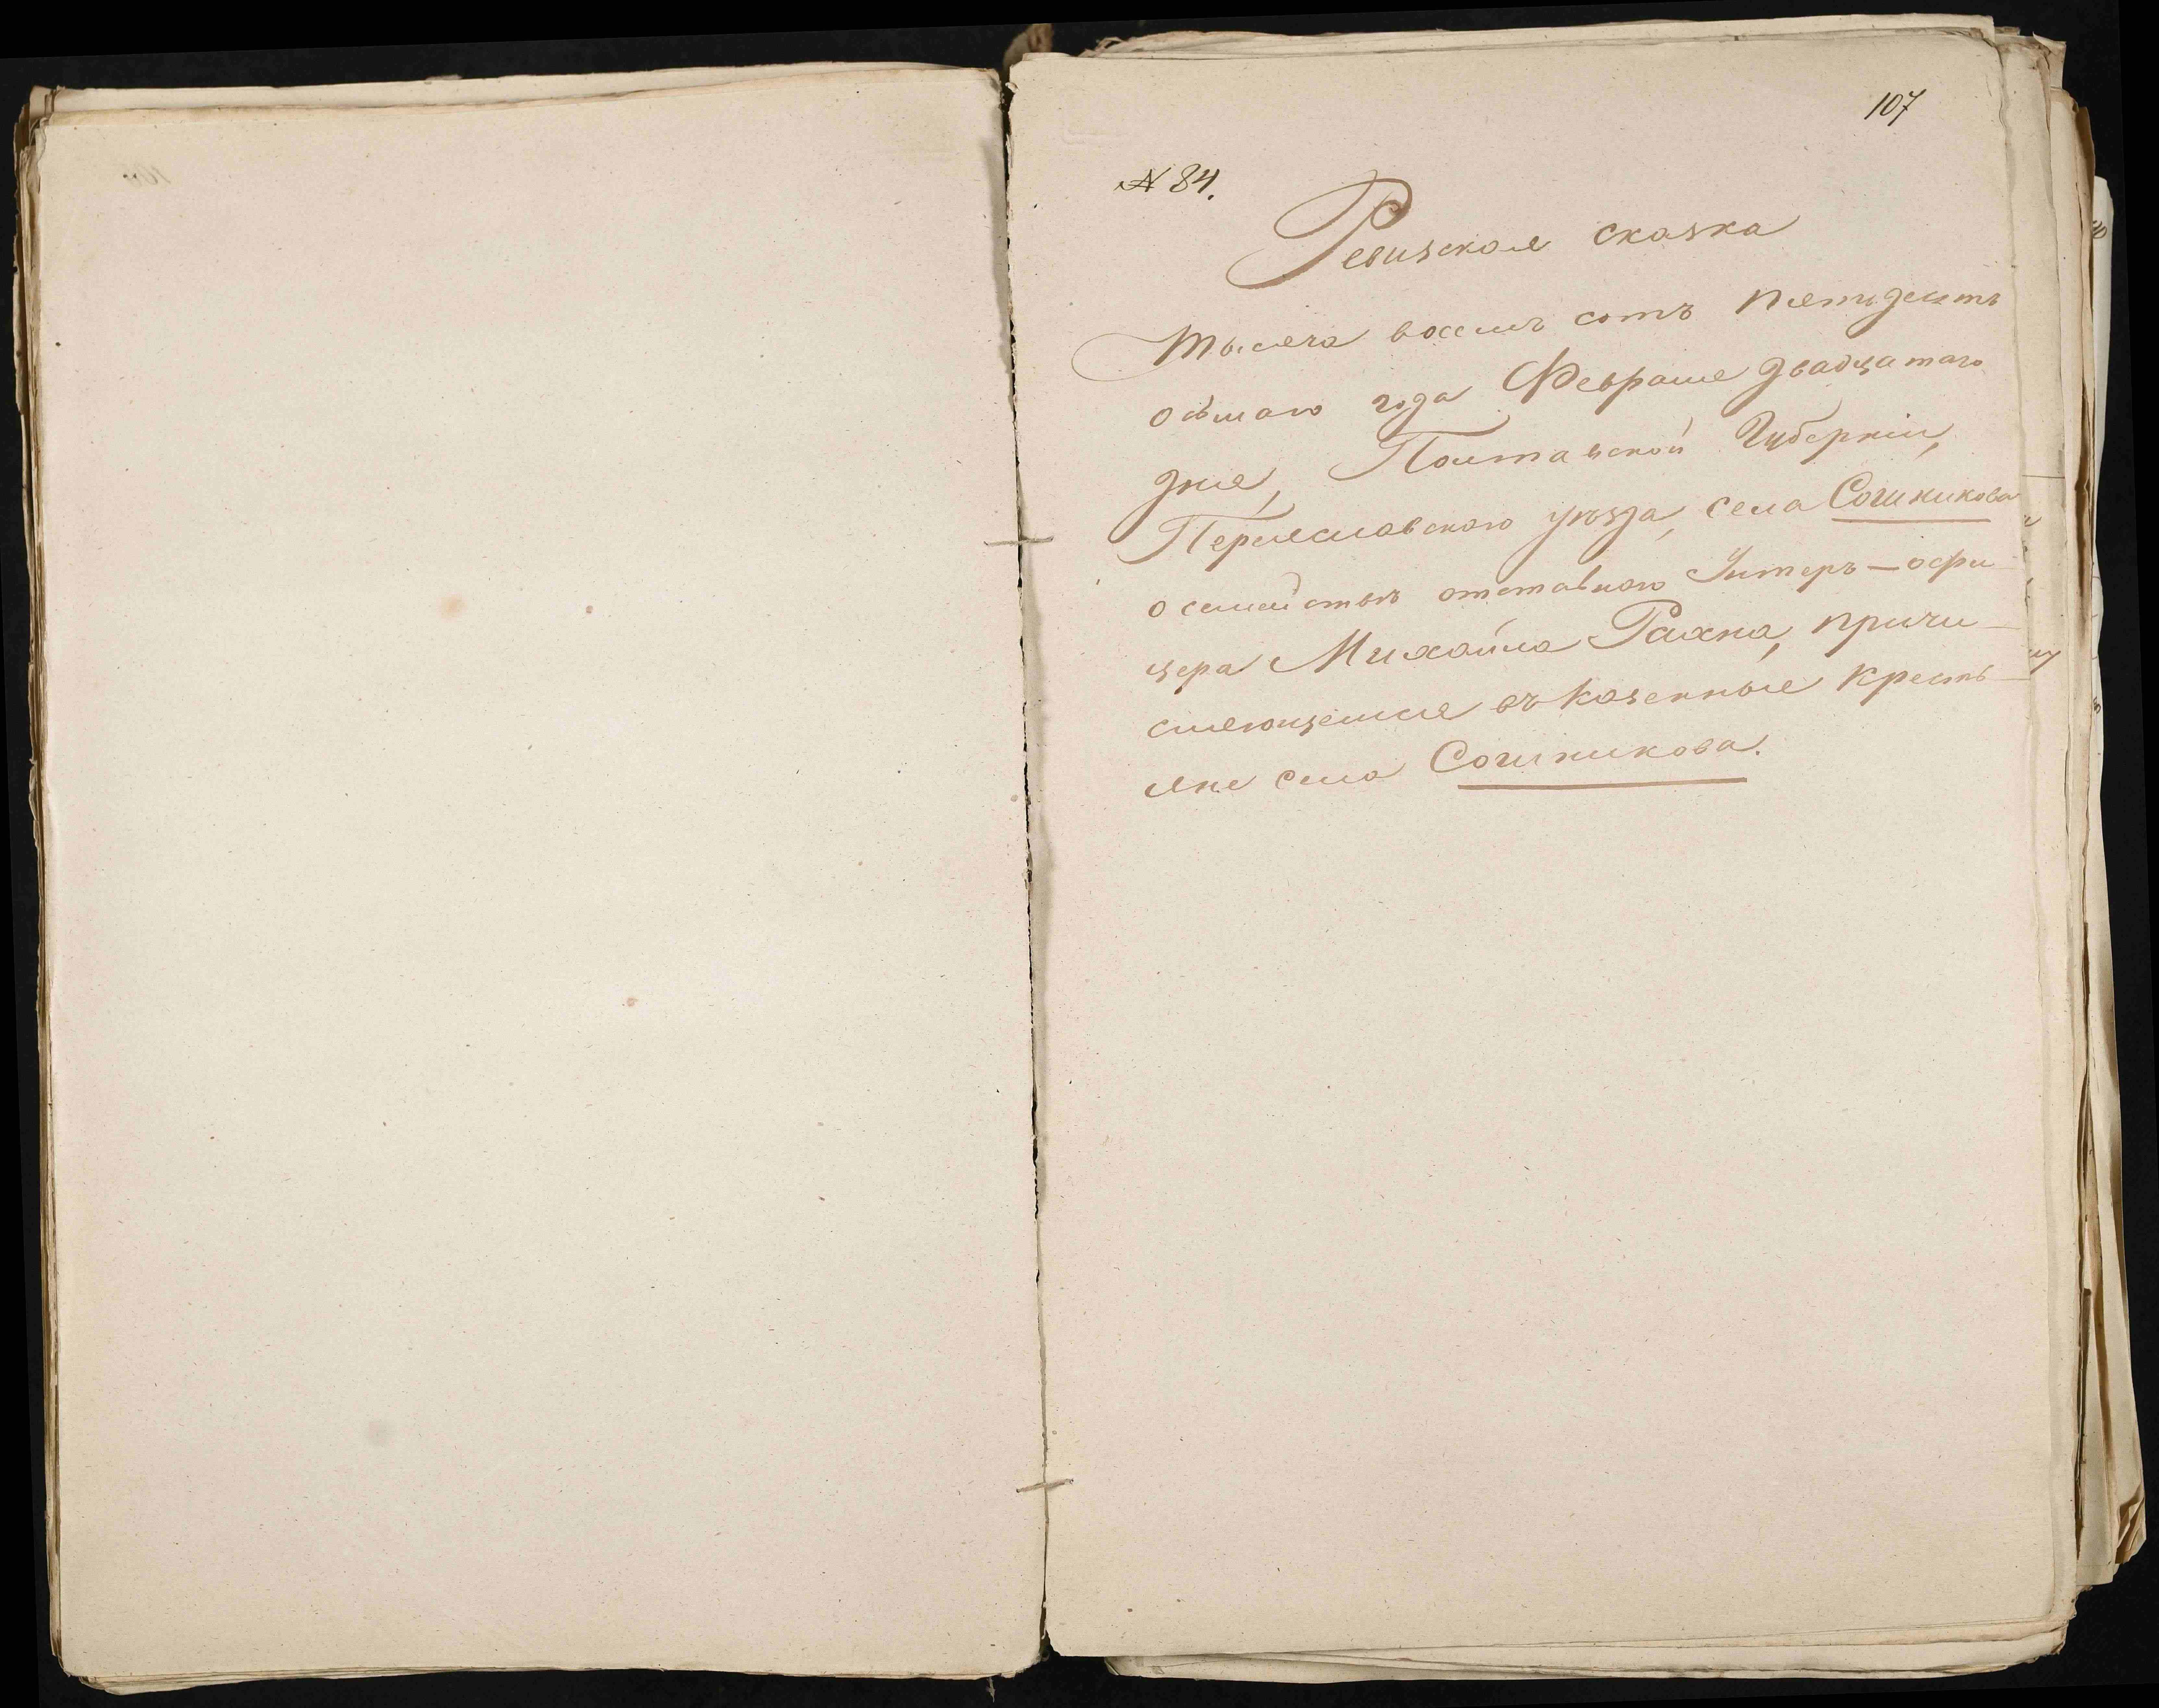 107
№ 84.
Ревизская сказка
Тысяча восемь сотъ пятьдесятъ
осьмаго года Февраля двадцатаго
дня, Полтавской Губерніи,
Переяславскаго уѣзда, села Сошникова
о семействѣ отставнаго Унтеръ-офи
цера Михайла Рахна, причи-
сляющемся въ казенные кресть-
яне села Сошникова.